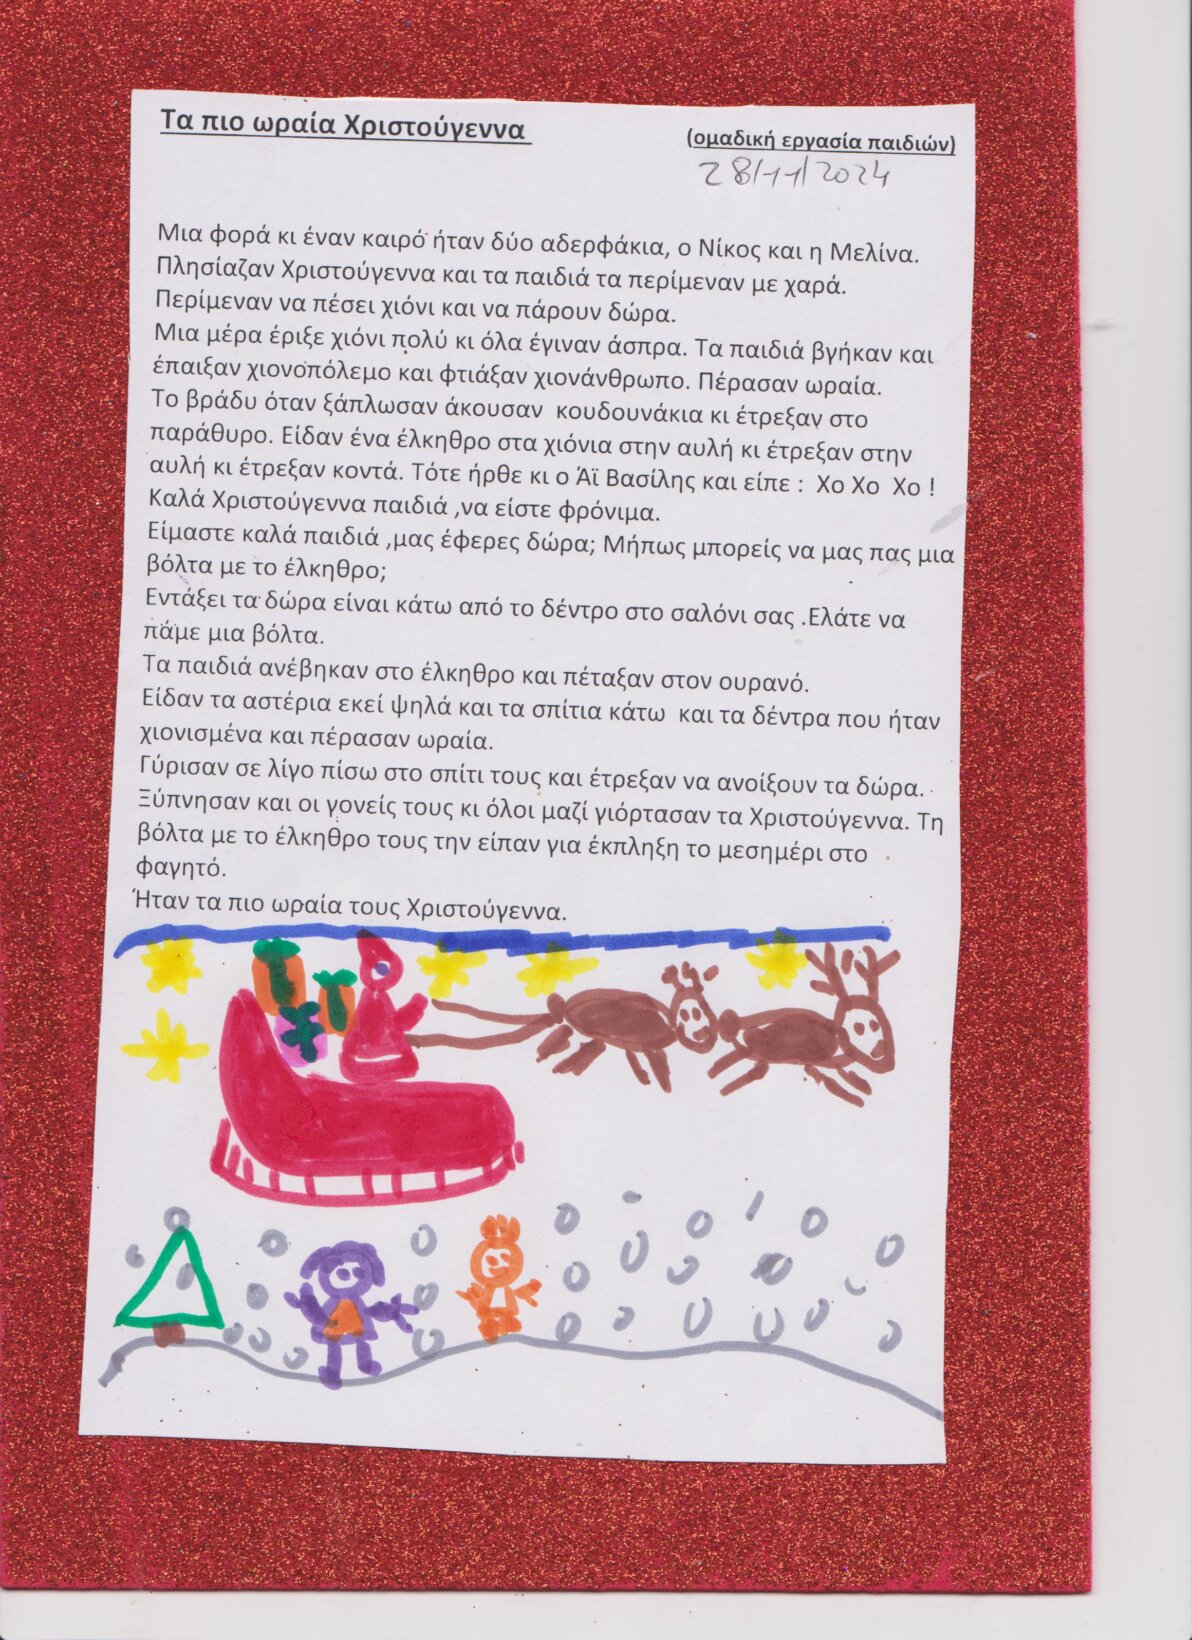 Τα πιο ωραία Χριστούγεννα
(ομαδική εργασία παιδιών)
28/11/2024
Μια φορά κι έναν καιρό ήταν δύο αδερφάκια, ο Νίκος και η Μελίνα.
Πλησίαζαν Χριστούγεννα και τα παιδιά τα περίμεναν με χαρά.
Περίμεναν να πέσει χιόνι και να πάρουν δώρα.
Μια μέρα έριξε χιόνι πολύ κι όλα έγιναν άσπρα. Τα παιδιά βγήκαν και
έπαιξαν χιονοπόλεμο και φτιάξαν χιονάνθρωπο. Πέρασαν ωραία.
Το βράδυ όταν ξάπλωσαν άκουσαν  κουδουνάκια κι έτρεξαν στο
παράθυρο. Είδαν ένα έλκηθρο στα χιόνια στην αυλή κι έτρεξαν στην
αυλή κι έτρεξαν κοντά. Τότε ήρθε κι ο Άϊ Βασίλης και είπε :  Χο Χο  Χο !
Καλά Χριστούγεννα παιδιά ,να είστε φρόνιμα.
Είμαστε καλά παιδιά ,μας έφερες δώρα; Μήπως μπορείς να μας πας μια
βόλτα με το έλκηθρο;
Εντάξει τα δώρα είναι κάτω από το δέντρο στο σαλόνι σας .Ελάτε να
πάμε μια βόλτα.
Τα παιδιά ανέβηκαν στο έλκηθρο και πέταξαν στον ουρανό.
Είδαν τα αστέρια εκεί ψηλά και τα σπίτια κάτω  και τα δέντρα που ήταν
χιονισμένα και πέρασαν ωραία.
Γύρισαν σε λίγο πίσω στο σπίτι τους και έτρεξαν να ανοίξουν τα δώρα.
Ξύπνησαν και οι γονείς τους κι όλοι μαζί γιόρτασαν τα Χριστούγεννα. Τη
βόλτα με το έλκηθρο τους την είπαν για έκπληξη το μεσημέρι στο
φαγητό.
Ήταν τα πιο ωραία τους Χριστούγεννα.